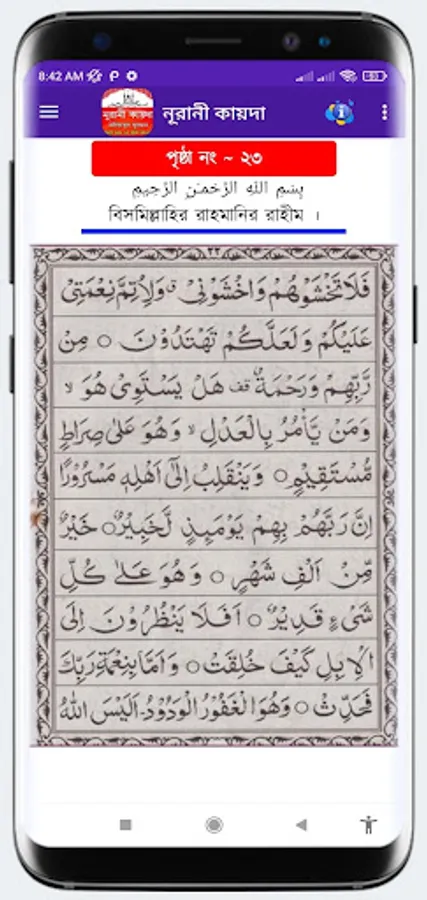 8:42 AM
নূরানী কায়দা
নূরানী কায়দা
পৃষ্ঠা নং ~ ২৩
بِسْمِ اللهِ الرَّحْمٰنِ الرَّحِيْمِ
বিসমিল্লাহির রাহমানির রাহীম ।
٢٢
فَلَا تَخْشَوْهُمْ وَاخْشَوْنِيْ ق وَلِاُتِمَّ نِعْمَتِيْ
عَلَيْكُمْ وَلَعَلَّكُمْ تَهْتَدُوْنَ ○ مِنْ
رَّبِّهِمْ وَرَحْمَةٌ قف هَلْ يَسْتَوِيْ هُوَ لا
وَمَنْ يَّأْمُرُ بِالْعَدْلِ لا وَهُوَ عَلٰى صِرَاطٍ
مُّسْتَقِيْمٍ ○ وَيَنْقَلِبُ اِلٰٓى اَهْلِهٖ مَسْرُوْرًا
اِنَّ رَبَّهُمْ بِهِمْ يَوْمَئِذٍ لَّخَبِيْرٌ ○ خَيْرٌ
مِّنْ اَلْفِ شَهْرٍ ○ وَهُوَ عَلٰى كُلِّ
شَيْءٍ قَدِيْرٌ ○ اَفَلَا يَنْظُرُوْنَ اِلَى
الْاِبِلِ كَيْفَ خُلِقَتْ ○ وَاَمَّا بِنِعْمَةِ رَبِّكَ
فَحَدِّثْ ○ وَهُوَ الْغَفُوْرُ الْوَدُوْدُ۔ اَلَيْسَ اللهُ